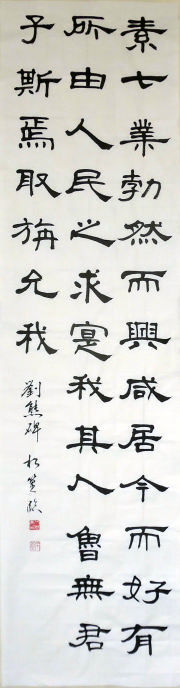 素七業勃然而興咸居今而好有
所由人民之求寔我其人魯無君
子斯焉取旃允我
劉熊碑